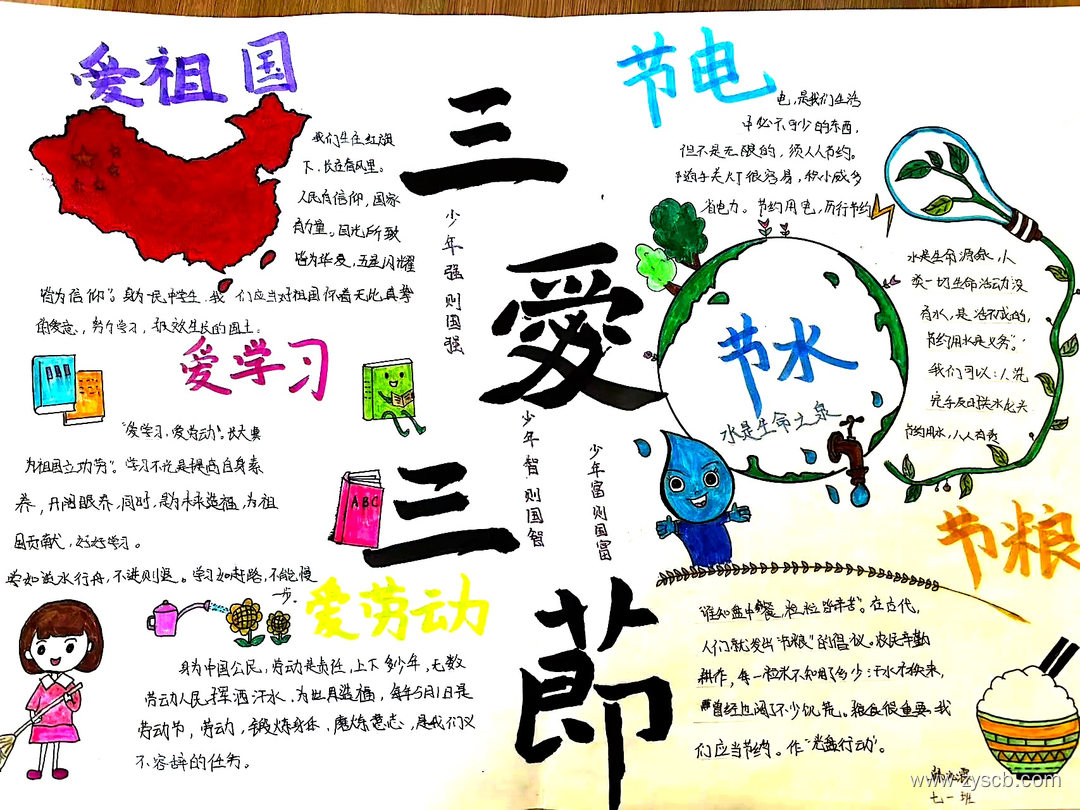 爱祖国
我们生在红旗
下，长在春风里。
人民有信仰，国家
有力量。目光所致
皆为华夏，五星闪耀
皆为信仰"。身为一民中学生，我们应当对祖国怀着无比真挚
努力学习，报效生长的国土。
爱学习
"爱学习，爱劳动"。长大要
为祖国立功劳"。学习不光是提高自身素
养，开阔眼界，同时，是为未来造福，为祖
国贡献，好好学习。
学如逆水行舟，不进则退。学习如赶路，不能慢
一步。
ABC
爱劳动
身为中国公民，劳动是责任，上下多少年，无数
劳动人民挥洒汗水，为世月造福，每年5月1日是
劳动节，劳动，锻炼身体，磨炼意志，是我们义
不容辞的任务。
三
爱
三
節
少年强则国强
少年智则国智
少年富则国富
节电
电，是我们生活
中必不可少的东西，
但不是无限的，须人人节约。
随手关灯很容易，积小成多
省电力。节约用电，厉行节约
节水
水是生命之泉
水是生命源泉，人
类一切生命活动没
有水，是活不成的，
节约用水是义务"。
我们可以：人洗
完手及时关水龙头
节约用水，人人有责
节粮
谁知盘中餐，粒粒皆辛苦"。在古代，
人们就发出"节粮"的倡议。农民辛勤
耕作，每一粒米不知用了多少汗水才换来，
曾经也闹了不少饥荒。粮食很重要，我
们应当节约。作"光盘行动"。
七一班
www.zyscb.com